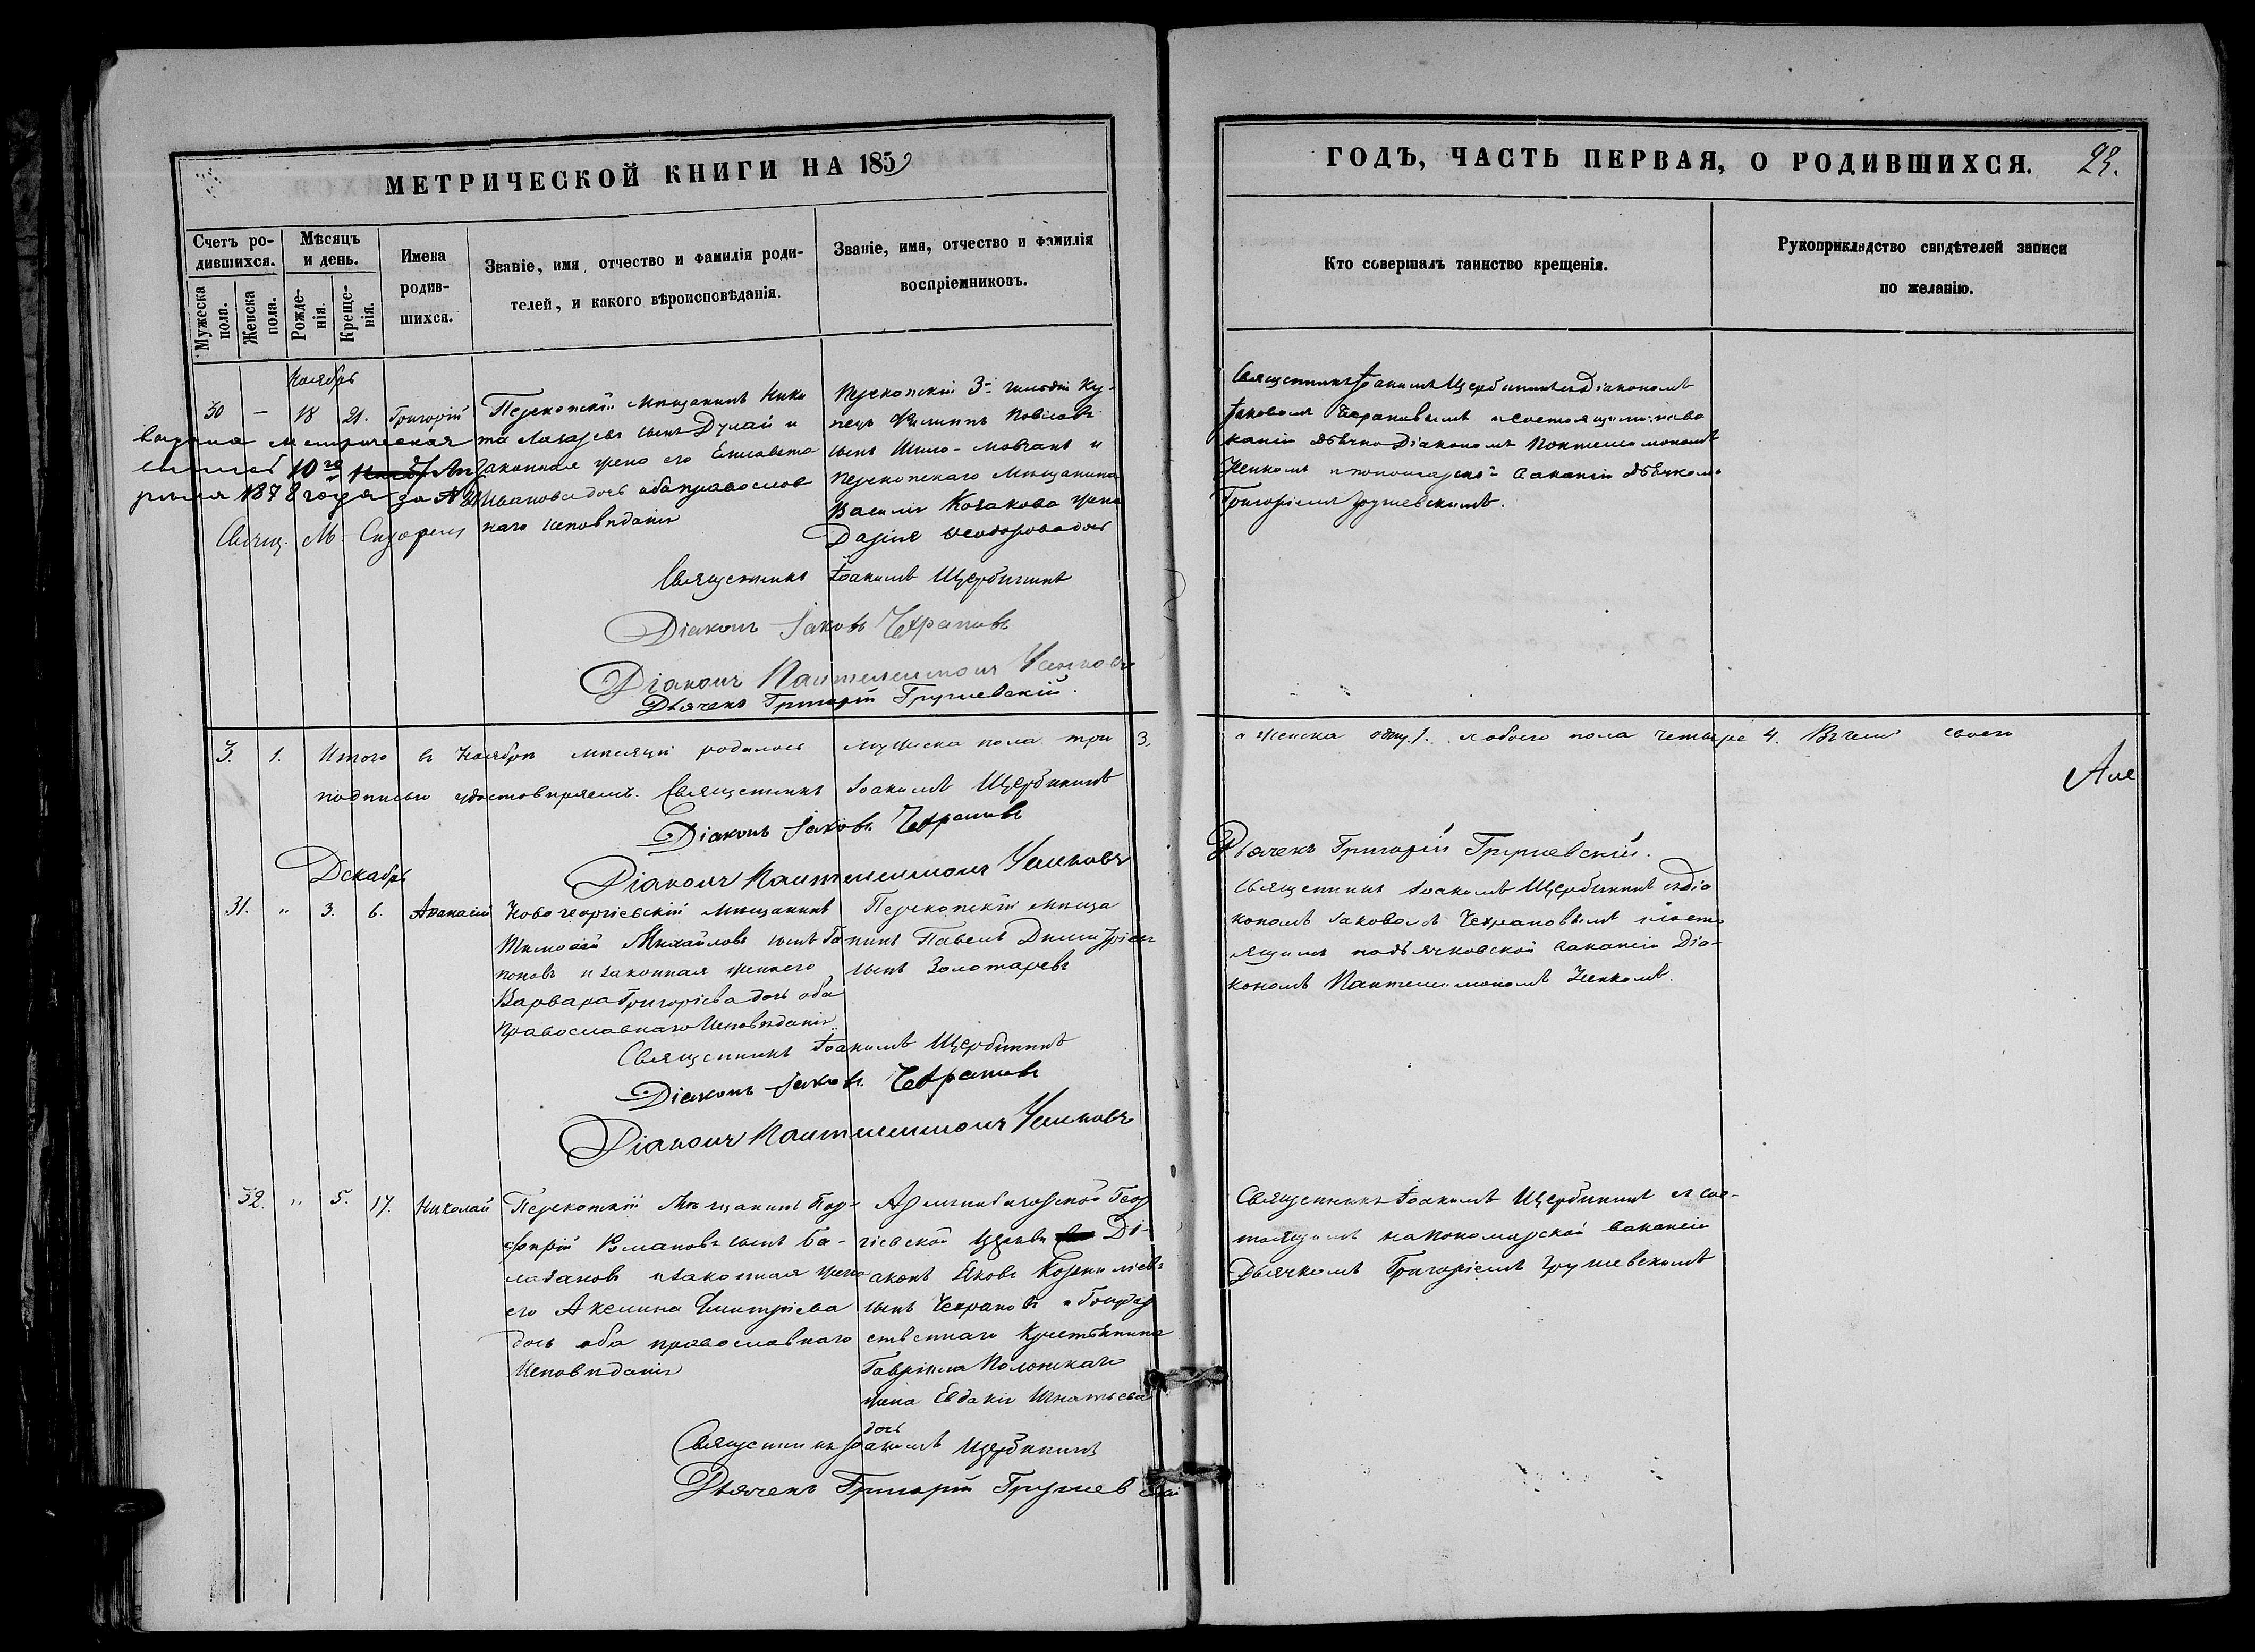 МЕТРИЧЕСКОЙ КНИГИ НА 1859
ГОДЪ, ЧАСТЬ ПЕРВАЯ, О РОДИВШИХСЯ. 23.
Счетъ ро-
дившихся.
Мужеска
пола.
Женска
пола.
Мѣсяцъ
и день.
Рожде-
нія.
Креще-
нія.
Имена
родив-
шихся.
Званіе, имя, отчество и фамилія роди-
телей, и какого вѣроисповѣданія.
Званіе, имя, отчество и фамилія
воспріемниковъ.
Кто совершалъ таинство крещенія.
Рукоприкладство свидѣтелей записи
по желанію.
Ноябрь
30 — 18 21. Григорій
Перекопскій мѣщанинъ Ники
та Лазаревъ сынъ Дунай и
законная жена его Елисавета
Иванова дочь оба православ
наго исповѣданія
Перекопскій 3й гильдіи ку-
пецъ Филиппъ
сынъ и
Перекопскаго мѣщанина
Василія Козакова жена
Дарія Ѳеодорова дочь
Священникъ Іоакимъ Щербининъ съ Діакономъ
Іаковомъ Чехрановымъ и состоящими на ва
кансіи дьячка Діакономъ Пантелеимономъ
и пономарской вакансіи дьячкомъ
Григоріемъ Грушевскимъ.
метрическая
10го Ап
рѣля 1878 года за №
Свящ. М.
Священникъ Іоакимъ Щербининъ
Діаконъ Іаковъ Чехрановъ
Діаконъ Пантелеимонъ
Дьячекъ Григорій Грушевскій.
3. 1. Итого въ Ноябрѣ мѣсяцѣ родилось мужеска пола три 3.
и женска одну 1. и обоего пола четыре 4. Въ чемъ своею
подписью удостовѣряемъ. Священникъ Іоакимъ Щербининъ
Діаконъ Іаковъ Чехрановъ
Діаконъ Пантелеимонъ
Дьячекъ Григорій Грушевскій.
Але
Декабрь
31. „ 3. 6. Аѳанасій
Новогеоргіевскій мѣщанинъ
Тимоѳей Михайловъ сынъ Га
поновъ и законная жена его
Варвара Григоріева дочь оба
православнаго исповѣданія
Перекопскій мѣща
нинъ Павелъ Димитріевъ
сынъ Золотаревъ
Священникъ Іоакимъ Щербининъ съ Діа
кономъ Іаковомъ Чехрановымъ и состо
ящимъ на дьячковской вакансіи Діа-
кономъ Пантелеимономъ
Священникъ Іоакимъ Щербининъ
Діаконъ Іаковъ Чехрановъ
Діаконъ Пантелеимонъ
32. „ 5. 17. Николай
Перекопскій Мѣщанинъ Пор-
фирій Романовъ сынъ Ба-
лабановъ и законная жена
его Акелина Димитріева
дочь оба православнаго
исповѣданія
Геор
гіевской церкви Ді-
аконъ Яковъ Корниліевъ
сынъ Чехрановъ и Государ
ственнаго крестьянина
Гавріила
жена Евдокія Игнатьева
дочь
Священникъ Іоакимъ Щербининъ и сос-
тоящимъ на пономарской вакансіи
Дьячкомъ Григоріемъ Грушевскимъ
Священникъ Іоакимъ Щербининъ
Дьячекъ Григорій Грушевскій